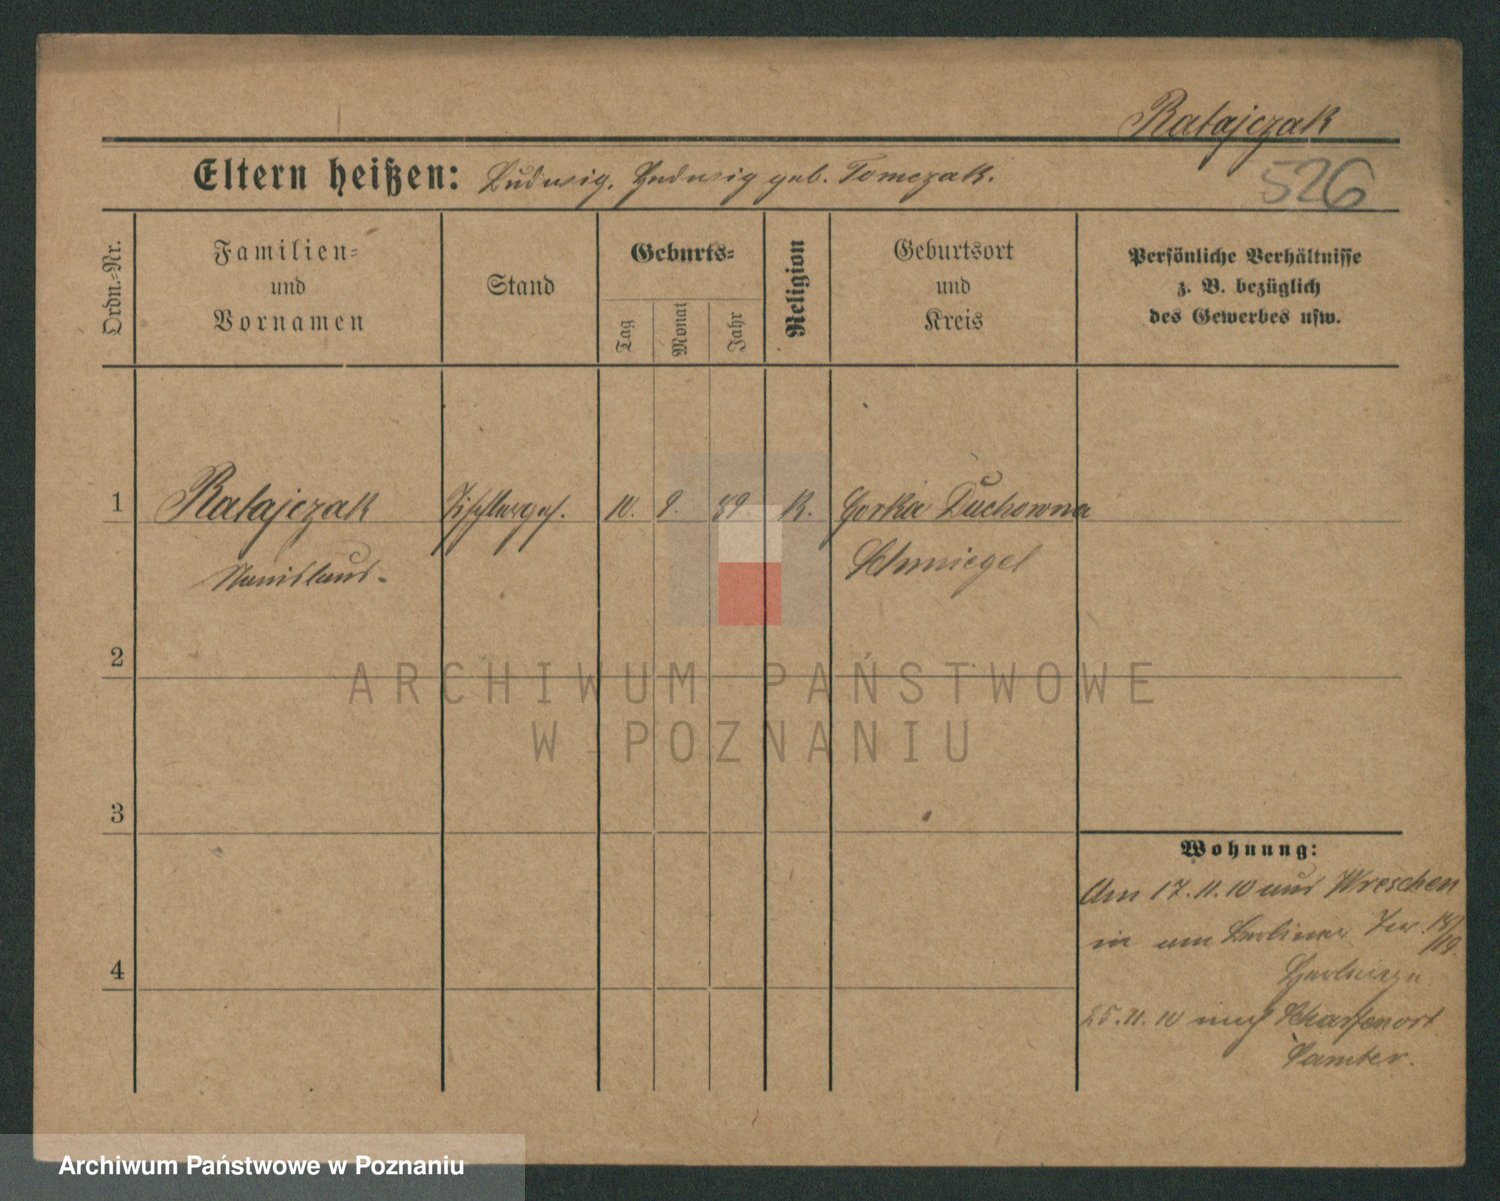 Ratajczak
Eltern heißen: Ludwig, Hedwig geb. Tomczak.
526
Ordn.-Nr.
Familien-
und
Vornamen
Stand
Geburts-
Tag
Monat
Jahr
Religion
Geburtsort
und
Kreis
Persönliche Verhältnisse
z. B. bezüglich
des Gewerbes usw.
1 Ratajczak Tischlerges. 10. 9. 89 K. Gorka Duchowna
Stanislaus. Schmiegel
2
3
4
Wohnung:
Am 17.11.10 aus Wreschen
in am Berliner Tor
Herberge
25.11.10 nach Scharfenort
Samter.
ARCHIWUM PAŃSTWOWE
W POZNANIU
Archiwum Państwowe w Poznaniu